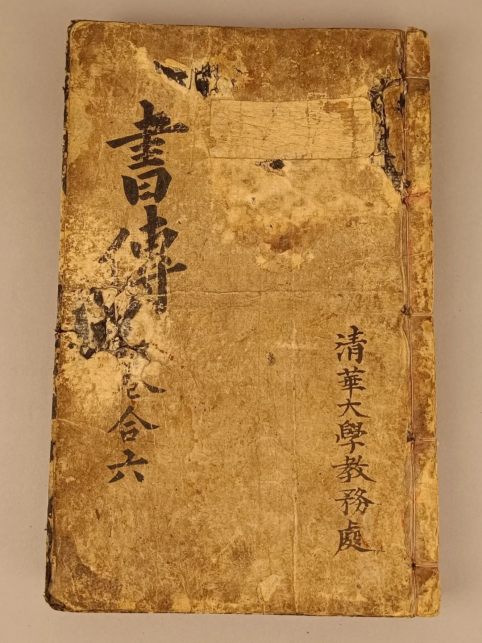 清華大學教務處
書傳合六